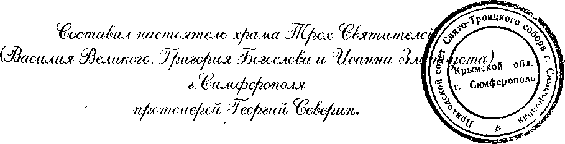 Составил настоятель храма Трех Святителей
(Василия Великого, Григория Богослова и Иоанна Златоуста)
г. Симферополя
протоиерей Георгий Северин.
Приходской совет Свято-Троицкого собора г. Симферополя
Крымской обл.
г. Симферополь